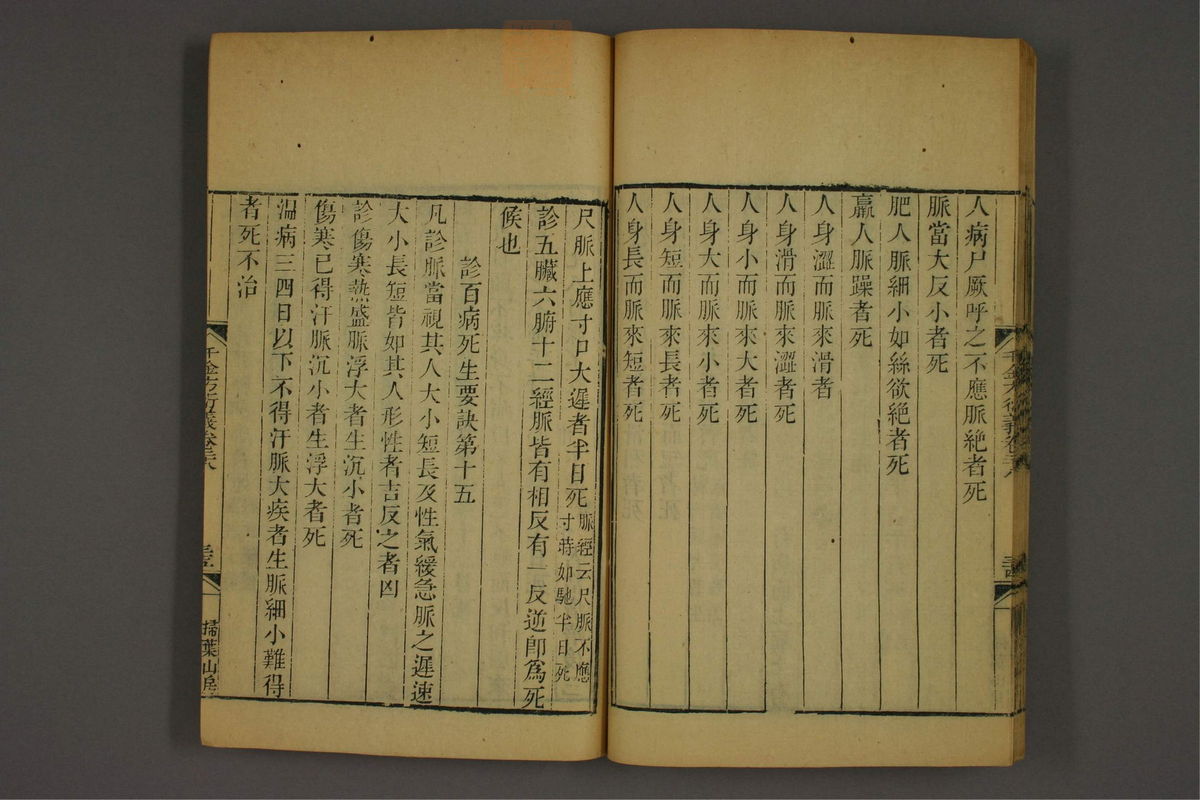 人病尸厥呼之不應脈絶者死
脈當大反小者死
肥人脈細小如絲欲絶者死
羸人脈躁者死
人身澀而脈來滑者
人身滑而脈來澀者死
人身小而脈來大者死
人身大而脈來小者死
人身短而脈來長者死
人身長而脈來短者死
尺脈上應寸口大遲者半日死脈經云尺脈不應寸時如馳半日死
診五臟六腑十二經脈皆有相反有一反逆卽爲死
候也
診百病死生要訣第十五
凡診脈當視其人大小短長及性氣緩急脈之遲速
大小長短皆如其人形性者吉反之者凶
診傷寒熱盛脈浮大者生沉小者死
傷寒已得汗脈沉小者生浮大者死
温病三四日以下不得汗脈大疾者生脈細小難得
者死不治
千金方衍義卷二十八
掃葉山房